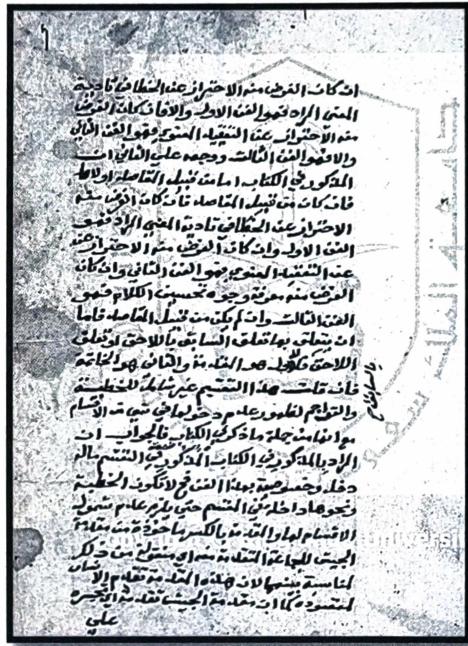 ان كان الغرض منه الاحتراز عن الخطا في تادية
المعنى المراد فهو الفن الاول والا فان كان الغرض
منه الاحتراز عن التعقيد المعنوي فهو الفن الثاني
والا فهو الفن الثالث ووجهه على الثاني ان
المذكور في الكتاب اما من قبيل المقاصد اولا
فان كان من قبيل المقاصد فان كان الغرض منه
الاحتراز عن الخطا في تادية المعنى المراد فهو
الفن الاول وان كان الغرض منه الاحتراز عن
عن التعقيد المعنوي فهو الفن الثاني وان كان
الغرض منه معرفة وجوه تحسين الكلام فهو
الفن الثالث وان لم يكن من قبيل المقاصد فاما
ان يتعلق بها تعلق السابق باللاحق او تعلق
اللاحق فالاول هو المقدمة والثاني هو الخاتمة
فان قلت هذا التقسيم غير شامل للخطبة
والتراجم لظهور عدم دخولها في شي من الاقسام
مع انها من جملة ما ذكر في الكتاب فالجواب ان
المراد بالمذكور في الكتاب المذكور في التقسيم ماله
دخل وخصوصية بهذا الفن فح لا تكون الخطبة
ونحوها داخلة في المقسم حتى يلزم عدم شمول
الاقسام لها والمقدمة بالكسر ماخوذة من مقدمة
الجيش للجماعة المتقدمة منه اي منقولة من ذلك
لمناسبة بينهما لان هذه المقدمة تقدم الانسان
لمقصوده كما ان مقدمة الجيش تقدمه اي تجسره
على